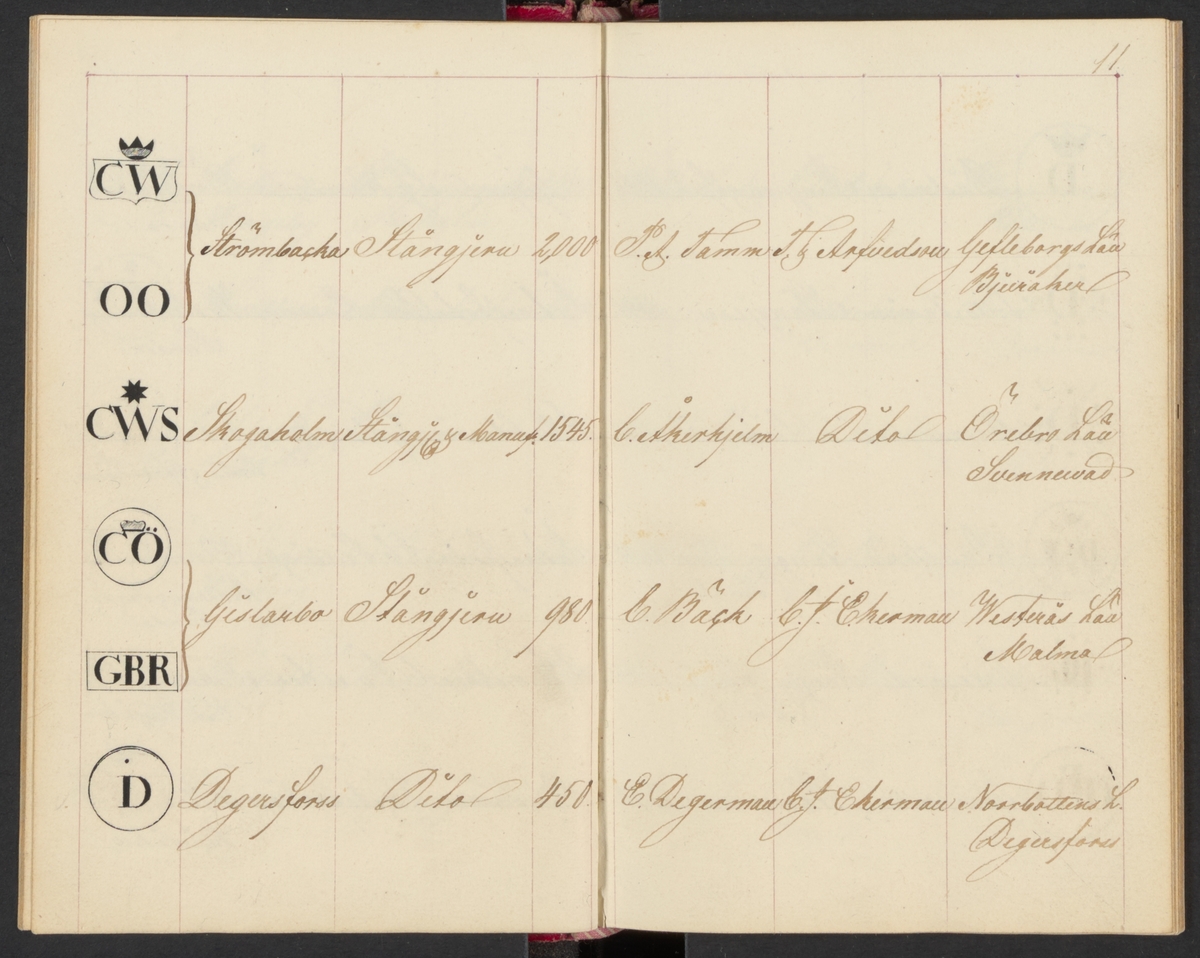 11
CW
Strömbacka Stångjern 2,000 P. A. Tamm T. & Arfvedson Gefleborgs Län
Bjuråker
OO
CWS Skogaholm Stångj. & Manuf. 1545. C. Åkerhjelm Dito Örebro Län
Svennevad
CÖ
Gislarbo Stångjern 980 C. Bäck C. J. Ekerman Westerås Län
Malma
GBR
D Degersforss Dito 450 E. Degerman C. J. Ekerman Norrbottens L.
Degersforss